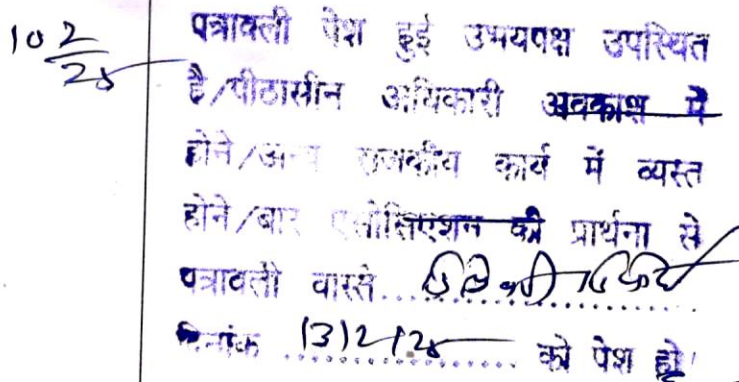 10 2/25
पत्रावली पेश हुई उभयपक्ष उपस्थित
है/पीठासीन अधिकारी अवकाश में
होने/अन्य राजकीय कार्य में व्यस्त
होने/बार एसोसिएशन की प्रार्थना से
पत्रावली वास्ते..........
दिनांक 13)2/25 को पेश हो।